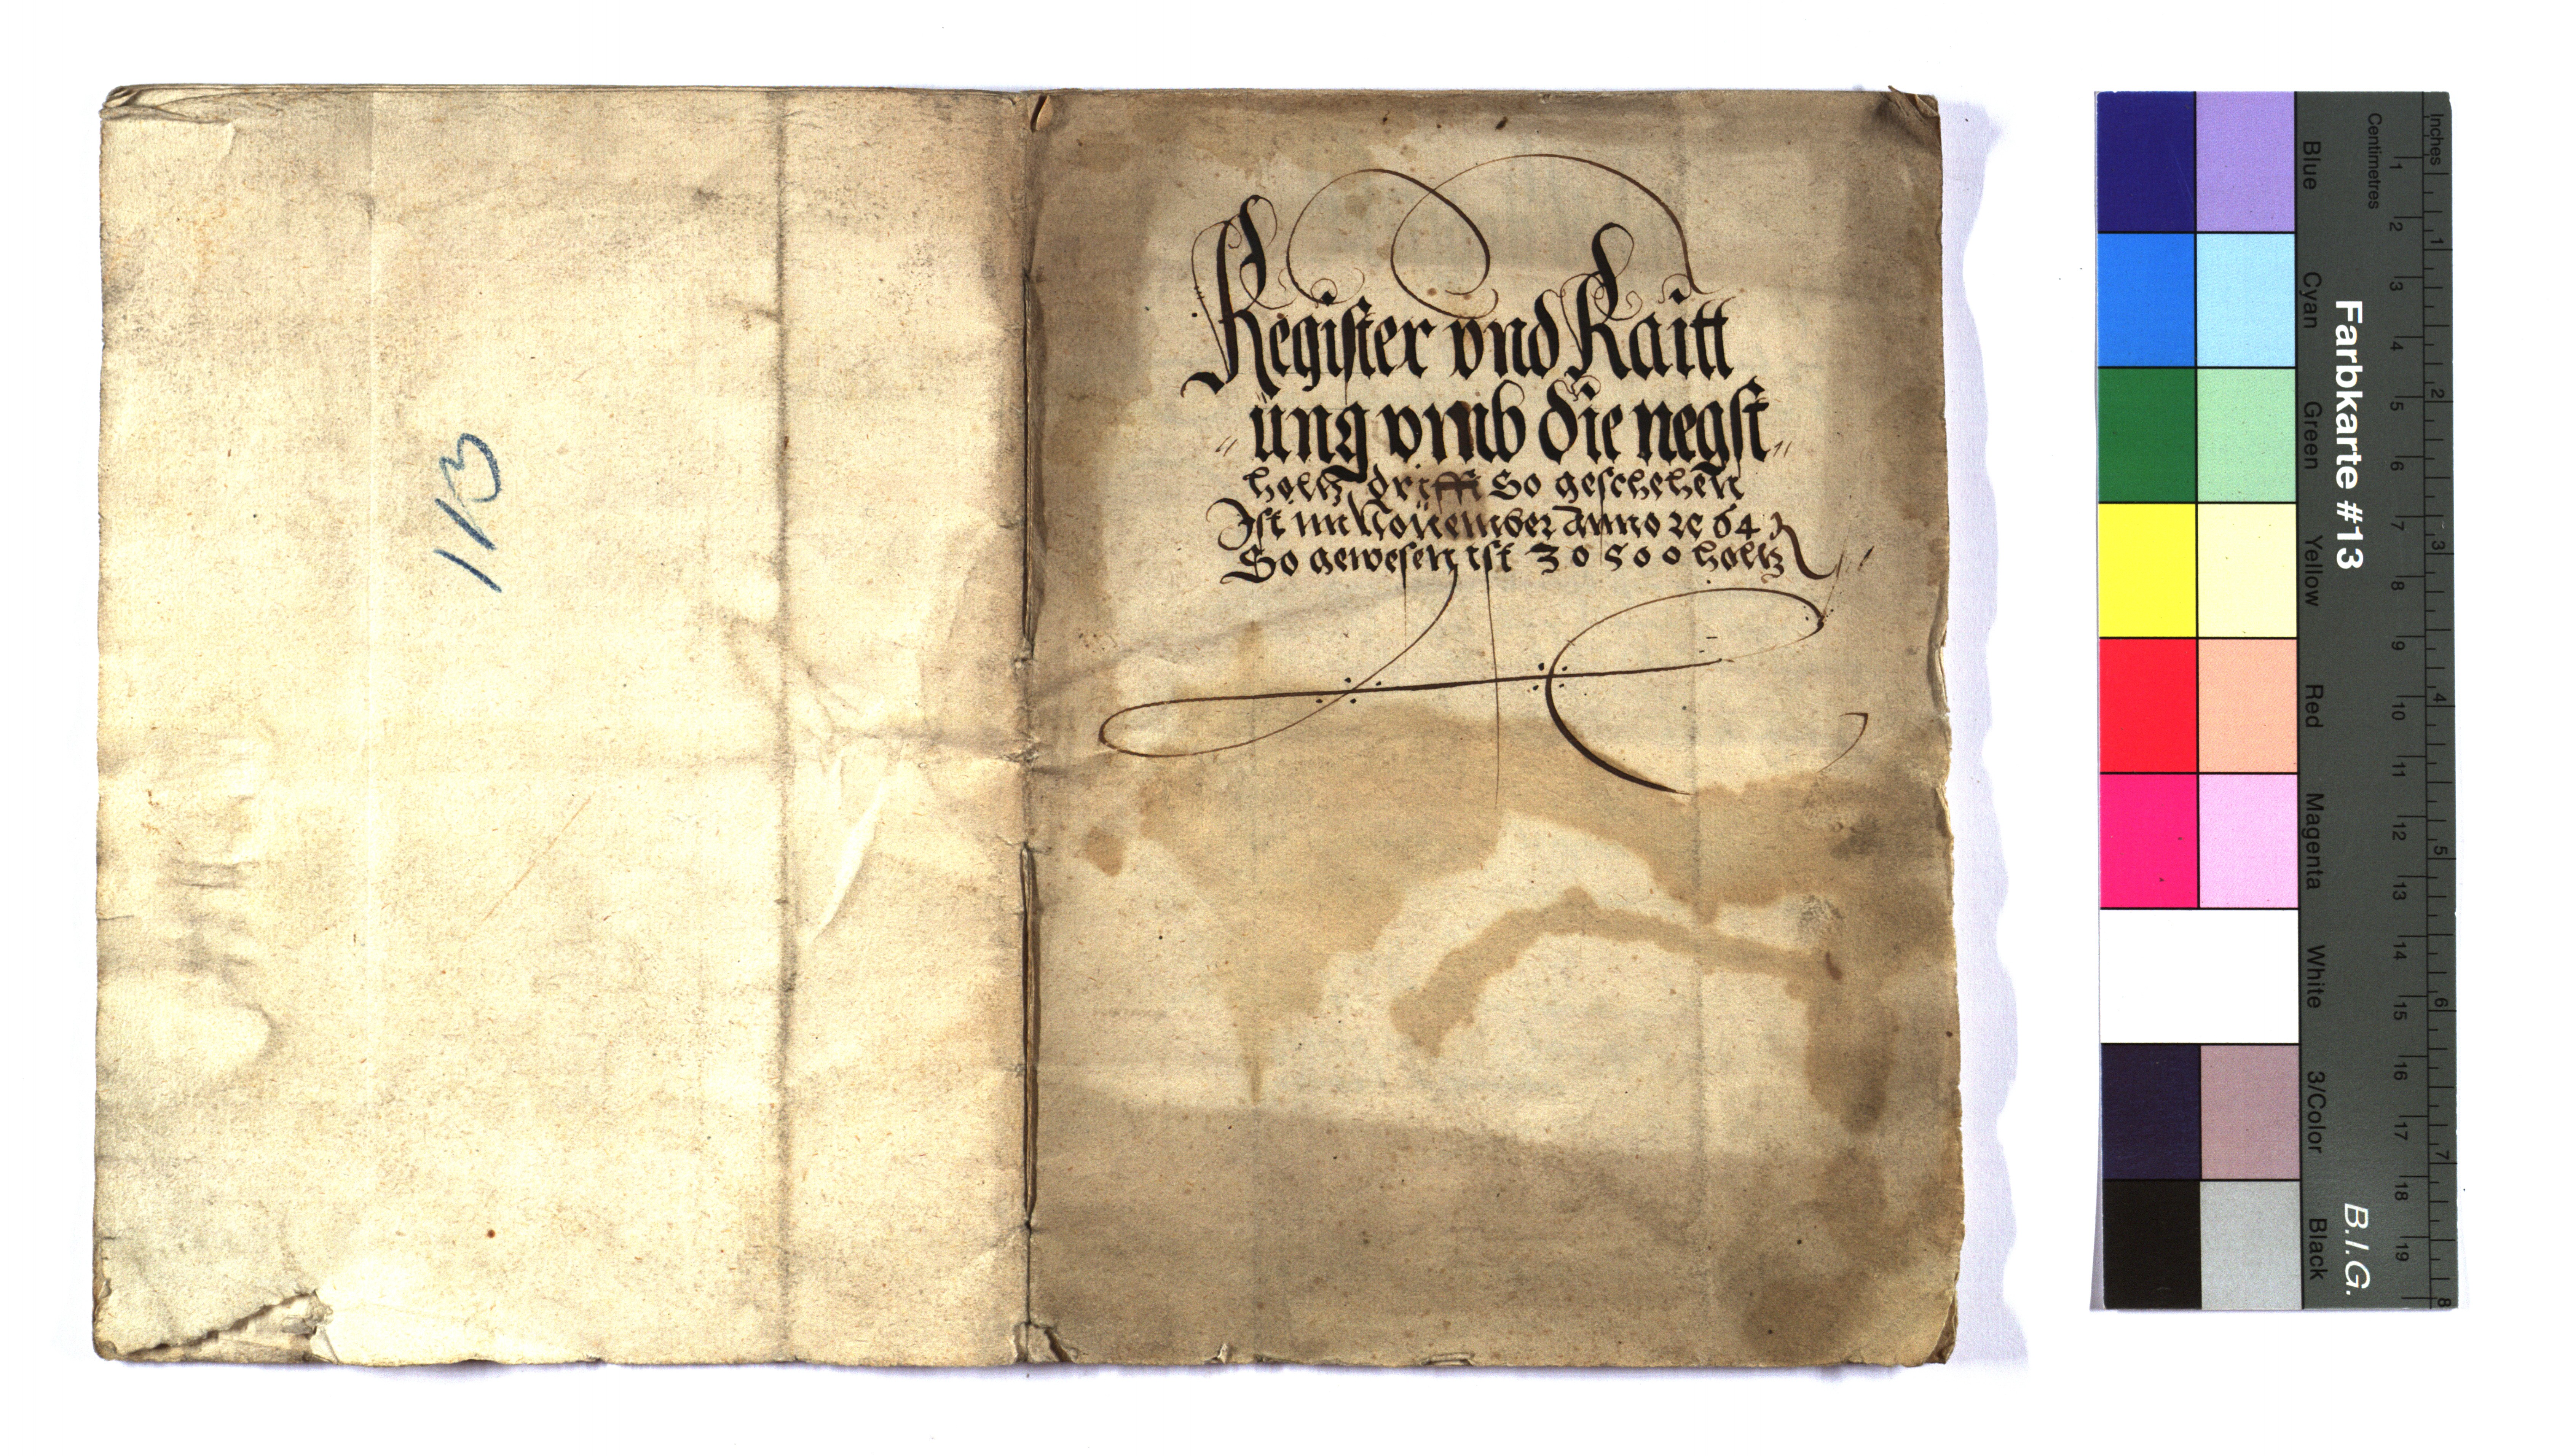 113
Register vnd Raitt
ung vmb die negst
holtz drifft So geschehen
Ist im November Anno ꝛc 64
So gewesen ist 30500 holtz
Farbkarte #13
B.I.G.
Centimetres
Inches
Blue
Cyan
Green
Yellow
Red
Magenta
White
3/Color
Black
1 2 3 4 5 6 7 8 9 10 11 12 13 14 15 16 17 18 19
1 2 3 4 5 6 7 8